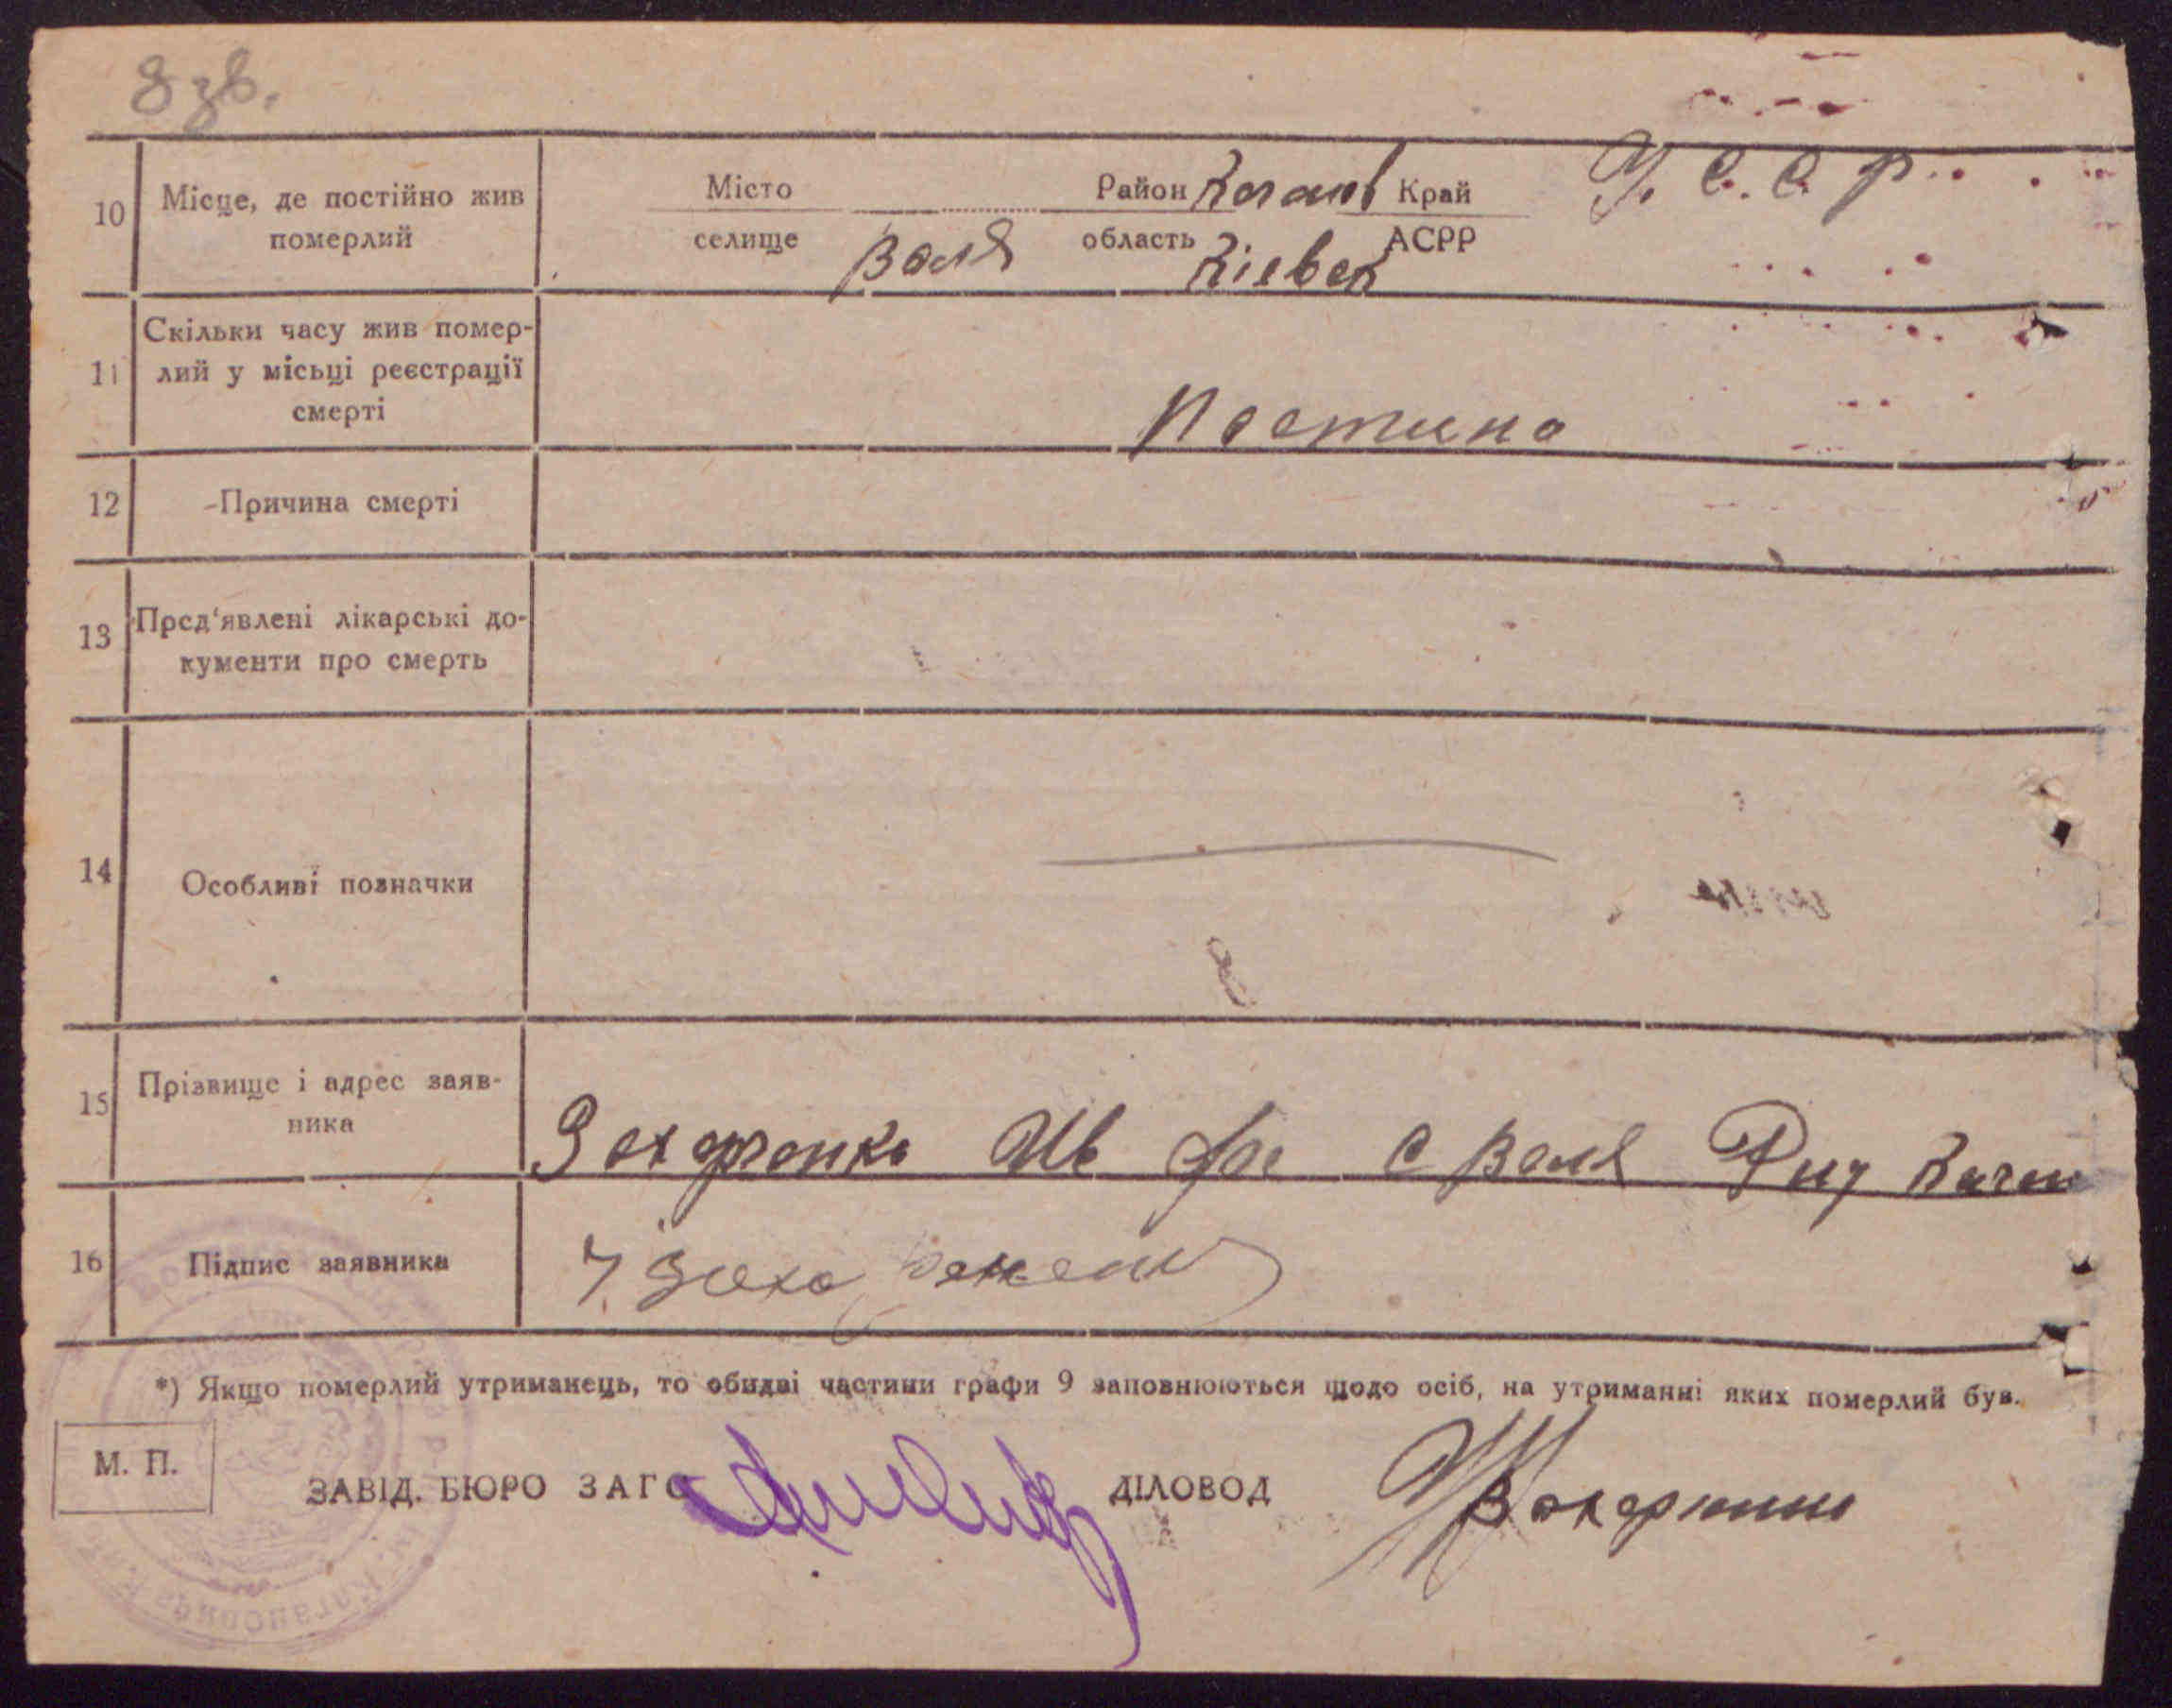 8 зв.
10 Місце, де постійно жив померлий
Місто Район Каган Край У. С. С. Р.
селище Воля область Киевск АСРР
11 Скільки часу жив помер-
лий у місьці реєстрації
смерті
Постино
12 Причина смерті
13 Пред'явлені лікарські до-
кументи про смерть
14 Особливі позначки
15 Прізвище і адрес заяв-
ника
Захарченко Ив с Воля
16 Підпис заявника
*) Якщо померлий утриманець, то обидві частини графи 9 заповнюються щодо осіб, на утриманні яких померлий був.
М. П.
ЗАВІД. БЮРО ЗАГС ДІЛОВОД
ім. Кагановича